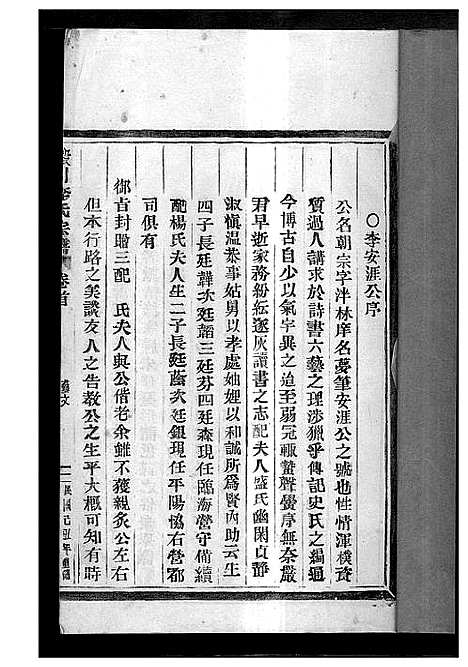 ○李安涯公序
公名朝宗字泮林庠名夢筆安涯公之號也性情渾樸資
質過人講求於詩書六藝之理涉獵乎傳記史氏之編通
今博古自少以氣宇異之迨至弱冠輒蜚聲黌序無奈嚴
君早逝家務紛紜遂灰讀書之志配夫人盛氏幽閑貞靜
淑慎溫恭事姑舅以孝處妯娌以和誠所為賢內助云生
四子長廷鏵次廷韜三廷芬四廷森現任臨海營守備續
配楊氏夫人生二子長廷蕃次廷銀現任平陽協右營都
司俱有
御旨封贈三配 氏夫人與公偕老余雖不獲親炙公左右
但本行路之美談友人之告教公之生平大概可知有時
李氏宗譜 卷首